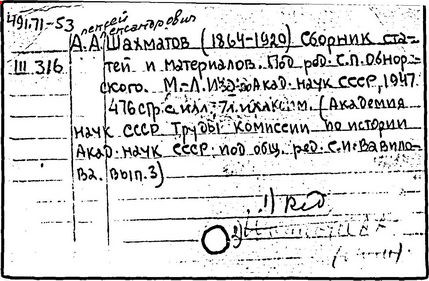 491.71-53
Алексей Александрович
А.А. Шахматов (1864-1920) Сборник ста-
III 316
тей и материалов. Под ред. С.П. Обнор-
ского. М.-Л. Изд-во Акад. наук СССР, 1947.
476 стр. с илл; 7 л.
(Академия
наук СССР Труды Комиссии по истории
Акад. наук СССР. под общ. ред. С.И. Вавило-
ва. Вып. 3)
1)
2)